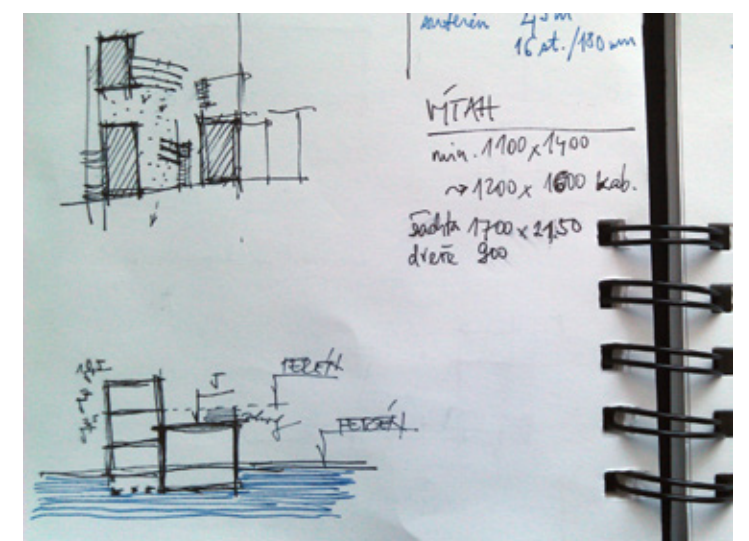 16 st./180 mm
VÝTAH
min. 1100 x 1400
~> 1200 x 1600 kab.
šachta 1700 x 2150
dveře 900
J
TERÉN
TERÉN